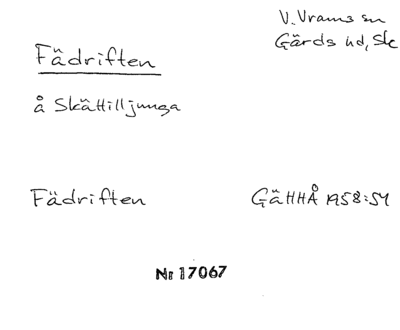 V. Vrams sn
Gärds hd, Sk
Fädriften
å Skättilljunga
Fädriften GäHHÅ 1958:54
Nr 17067